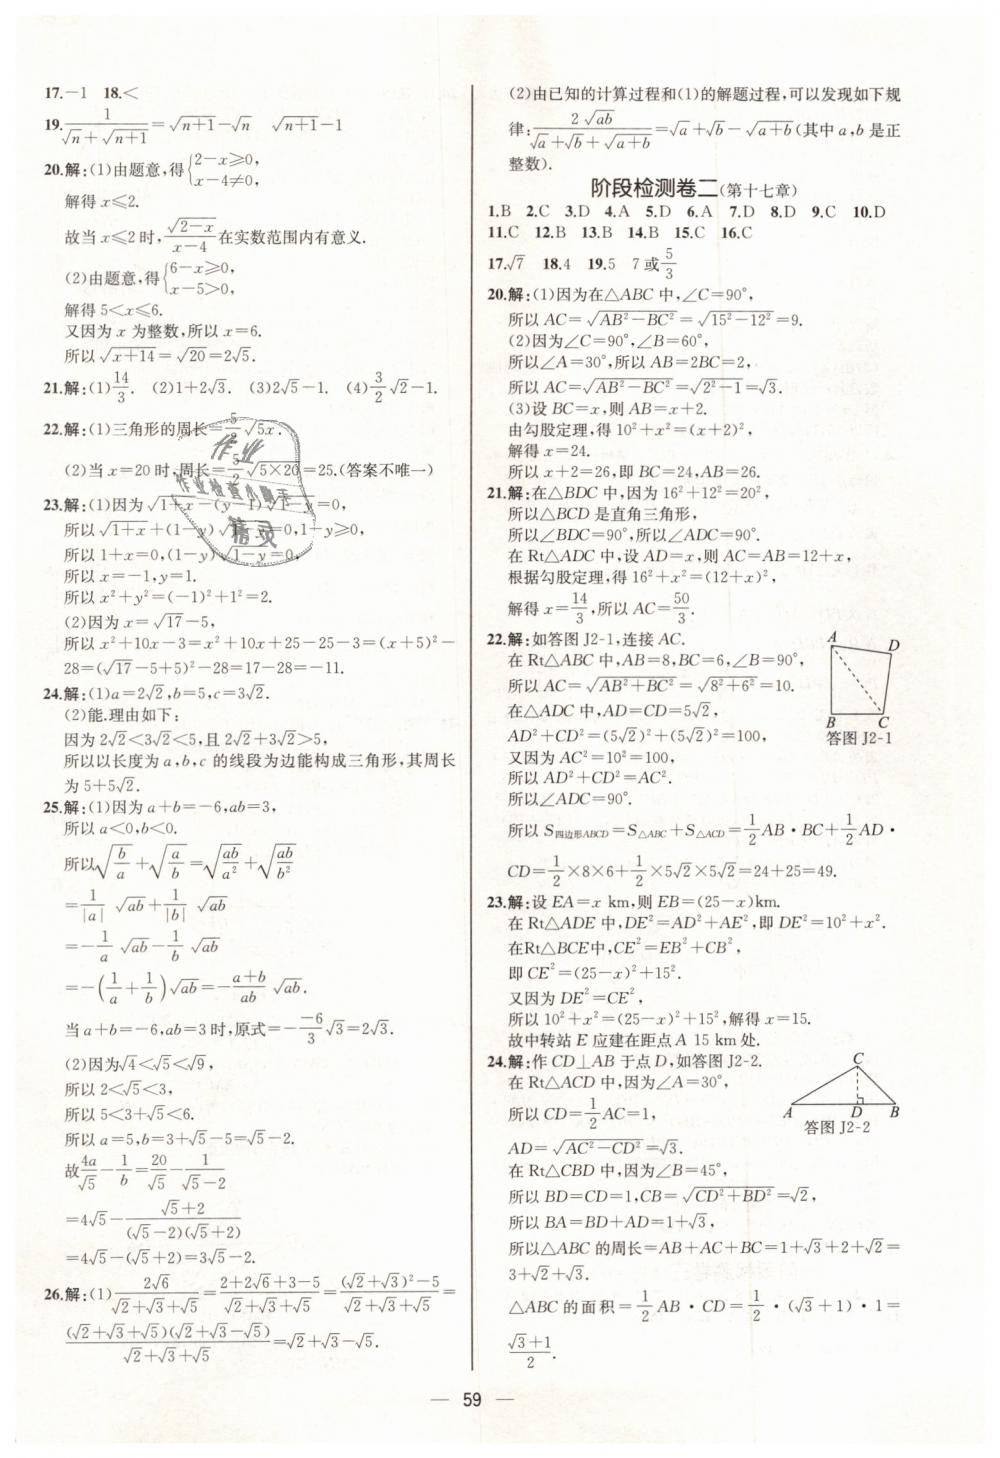 17.-1　18.<
19.\frac{1}{√n+√(n+1)}=√(n+1)-√n　√(n+1)-1
20.解:(1)由题意,得{2-x≥0, x-4≠0,
解得 x≤2.
故当 x≤2 时,\frac{√(2-x)}{x-4}在实数范围内有意义.
(2)由题意,得{6-x≥0, x-5>0,
解得 5<x≤6.
又因为 x 为整数,所以 x=6.
所以√(x+14)=√20=2√5.
21.解:(1)\frac{14}{3}.　(2)1+2√3.　(3)2√5-1.　(4)\frac{3}{2}√2-1.
22.解:(1)三角形的周长=\frac{5}{2}√(5x).
(2)当 x=20 时,周长=\frac{5}{2}√(5×20)=25.(答案不唯一)
23.解:(1)因为√(1+x)-(y-1)√(1-y)=0,
所以√(1+x)+(1-y)√(1-y)=0,1-y≥0,
所以 1+x=0,(1-y)√(1-y)=0,
所以 x=-1,y=1.
所以 x²+y²=(-1)²+1²=2.
(2)因为 x=√17-5,
所以 x²+10x-3=x²+10x+25-25-3=(x+5)²-
28=(√17-5+5)²-28=17-28=-11.
24.解:(1)a=2√2,b=5,c=3√2.
(2)能.理由如下:
因为 2√2<3√2<5,且 2√2+3√2>5,
所以以长度为 a,b,c 的线段为边能构成三角形,其周长
为 5+5√2.
25.解:(1)因为 a+b=-6,ab=3,
所以 a<0,b<0.
所以√\frac{b}{a}+√\frac{a}{b}=√\frac{ab}{a²}+√\frac{ab}{b²}
=\frac{1}{|a|}√ab+\frac{1}{|b|}√ab
=-\frac{1}{a}√ab-\frac{1}{b}√ab
=-(\frac{1}{a}+\frac{1}{b})√ab=-\frac{a+b}{ab}√ab.
当 a+b=-6,ab=3 时,原式=-\frac{-6}{3}√3=2√3.
(2)因为√4<√5<√9,
所以 2<√5<3,
所以 5<3+√5<6.
所以 a=5,b=3+√5-5=√5-2.
故\frac{4a}{√5}-\frac{1}{b}=\frac{20}{√5}-\frac{1}{√5-2}
=4√5-\frac{√5+2}{(√5-2)(√5+2)}
=4√5-(√5+2)=3√5-2.
26.解:(1)\frac{2√6}{√2+√3+√5}=\frac{2+2√6+3-5}{√2+√3+√5}=\frac{(√2+√3)²-5}{√2+√3+√5}=
\frac{(√2+√3+√5)(√2+√3-√5)}{√2+√3+√5}=√2+√3-√5.
(2)由已知的计算过程和(1)的解题过程,可以发现如下规
律:\frac{2√ab}{√a+√b+√(a+b)}=√a+√b-√(a+b)(其中 a,b 是正
整数).
阶段检测卷二(第十七章)
1.B　2.C　3.D　4.A　5.D　6.A　7.D　8.D　9.C　10.D
11.C　12.B　13.B　14.B　15.C　16.C
17.√7　18.4　19.5　7 或\frac{5}{3}
20.解:(1)因为在△ABC 中,∠C=90°,
所以 AC=√(AB²-BC²)=√(15²-12²)=9.
(2)因为∠C=90°,∠B=60°,
所以∠A=30°,所以 AB=2BC=2,
所以 AC=√(AB²-BC²)=√(2²-1)=√3.
(3)设 BC=x,则 AB=x+2.
由勾股定理,得 10²+x²=(x+2)²,
解得 x=24.
所以 x+2=26,即 BC=24,AB=26.
21.解:在△BDC 中,因为 16²+12²=20²,
所以△BCD 是直角三角形,
所以∠BDC=90°,所以∠ADC=90°.
在 Rt△ADC 中,设 AD=x,则 AC=AB=12+x,
根据勾股定理,得 16²+x²=(12+x)²,
解得 x=\frac{14}{3},所以 AC=\frac{50}{3}.
22.解:如答图 J2-1,连接 AC.
在 Rt△ABC 中,AB=8,BC=6,∠B=90°,
所以 AC=√(AB²+BC²)=√(8²+6²)=10.
在△ADC 中,AD=CD=5√2,
AD²+CD²=(5√2)²+(5√2)²=100,
又因为 AC²=10²=100,
所以 AD²+CD²=AC².
所以∠ADC=90°.
所以 S四边形ABCD=S△ABC+S△ACD=\frac{1}{2}AB·BC+\frac{1}{2}AD·
CD=\frac{1}{2}×8×6+\frac{1}{2}×5√2×5√2=24+25=49.
A
D
B　C
答图 J2-1
23.解:设 EA=x km,则 EB=(25-x)km.
在 Rt△ADE 中,DE²=AD²+AE²,即 DE²=10²+x².
在Rt△BCE中,CE²=EB²+CB²,
即 CE²=(25-x)²+15².
又因为 DE²=CE²,
所以 10²+x²=(25-x)²+15²,解得 x=15.
故中转站 E 应建在距点 A 15 km 处.
24.解:作 CD⊥AB 于点 D,如答图 J2-2.
在 Rt△ACD 中,因为∠A=30°,
所以 CD=\frac{1}{2}AC=1,
AD=√(AC²-CD²)=√3.
在 Rt△CBD 中,因为∠B=45°,
所以 BD=CD=1,CB=√(CD²+BD²)=√2,
所以 BA=BD+AD=1+√3,
所以△ABC 的周长=AB+AC+BC=1+√3+2+√2=
3+√2+√3.
△ABC 的面积=\frac{1}{2}AB·CD=\frac{1}{2}·(√3+1)·1=
\frac{√3+1}{2}.
C
A　D　B
答图 J2-2
作业
作业检查小助手
精灵
— 59 —